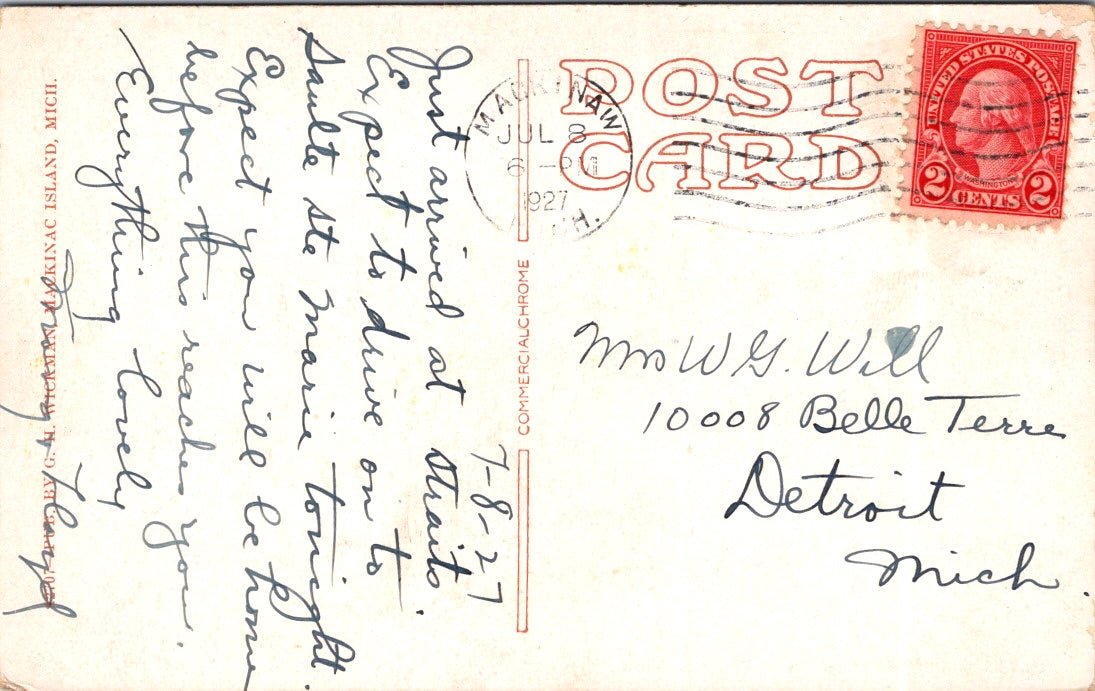 POST
CARD
MACKINAW
JUL 8
6 - PM
1927
MICH.
UNITED STATES POSTAGE
WASHINGTON
2 CENTS 2
7-8-27
Just arrived at straits.
Expect to drive on to
Saulte Ste Marie tonight.
Expect you will be home
before this reaches you.
Everything lovely
Floyd
Mrs W G. Will
10008 Belle Terre
Detroit
Mich.
COMMERCIALCHROME
PUB. BY G. H. WICKMAN, MACKINAC ISLAND, MICH.